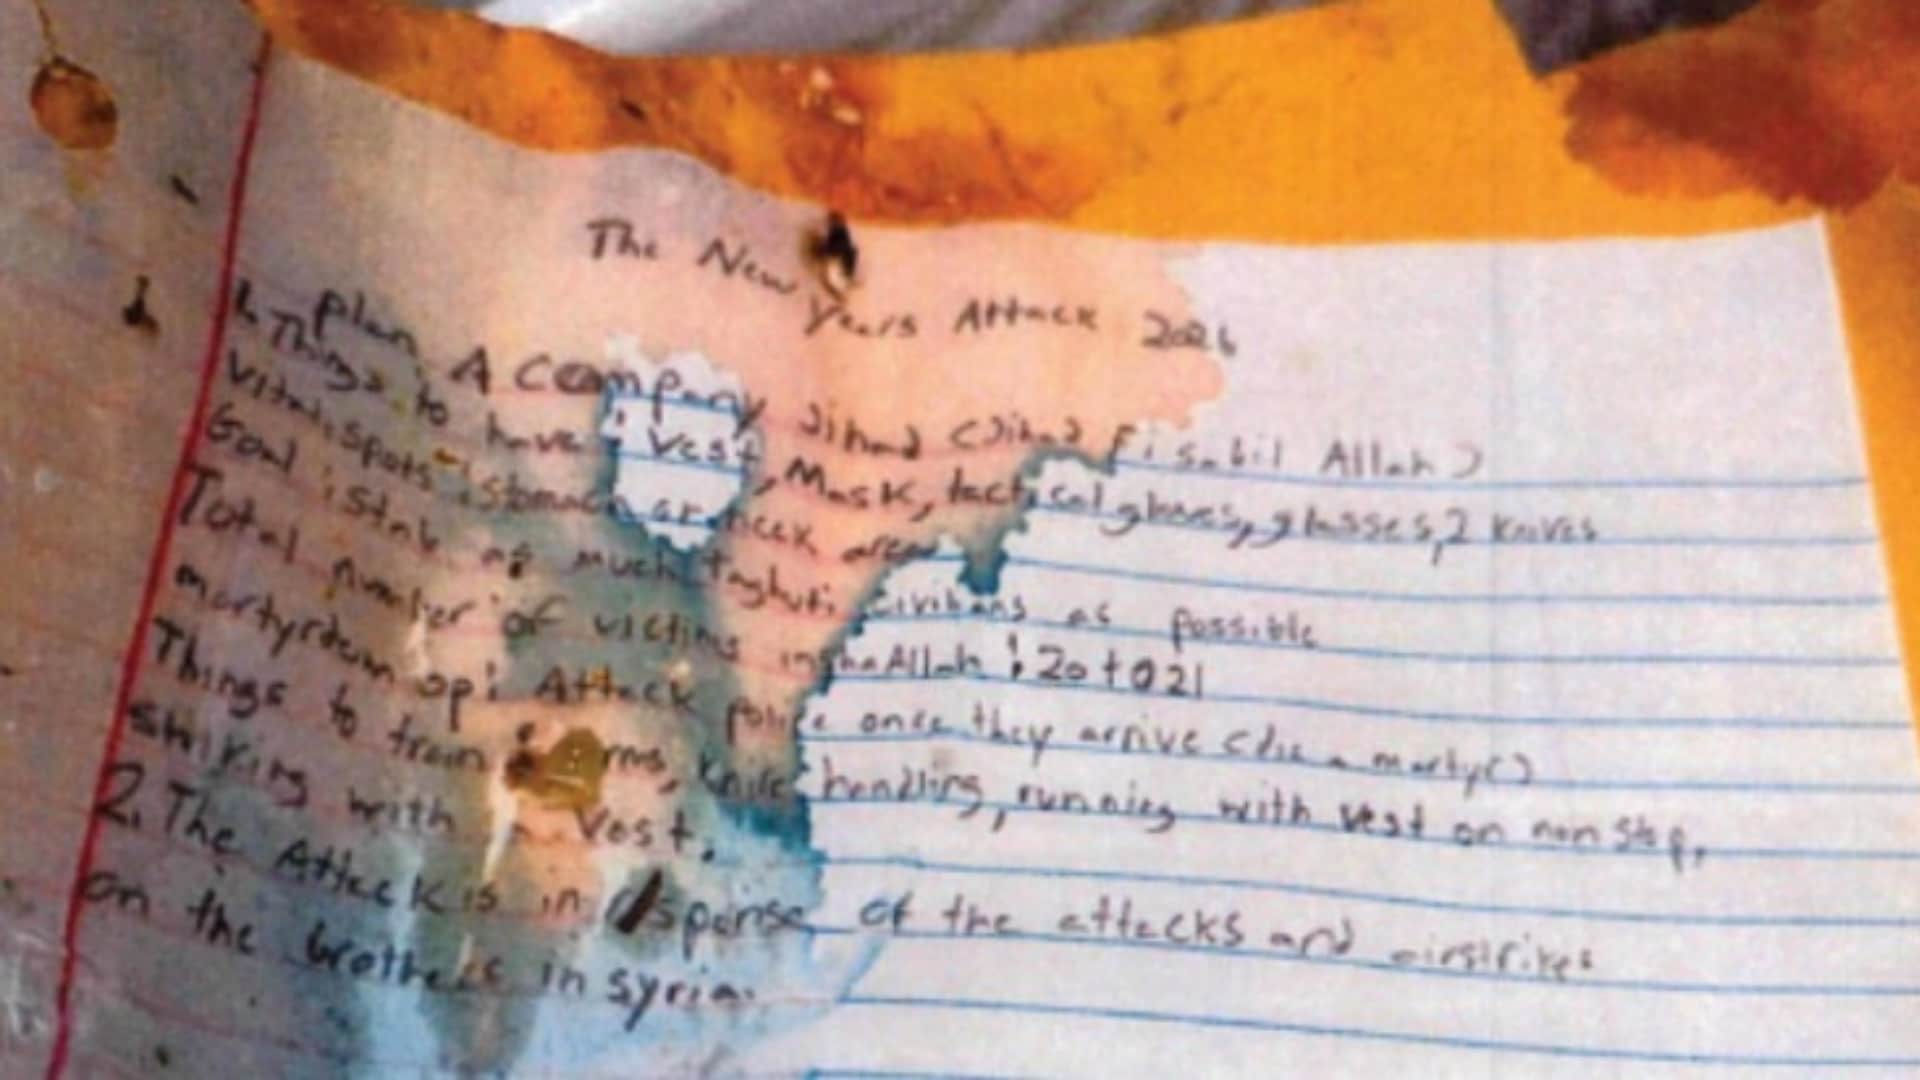 The New Years Attack 2026
1. plan A Company Jihad (Jihad fi sabil Allah)
Things to have : vest, Mask, tactical gloves, glasses, 2 knives
vital spots : stomach or neck area
Goal : stab as much taghuti civilians as possible
Total number of victims inshaAllah : 20 to 21
martyrdom op : Attack police once they arrive (die a martyr)
Things to train : knife handling, running with vest on non stop,
striking with vest.
2. The Attack is in of the attacks and airstrikes
on the brothers in syria.